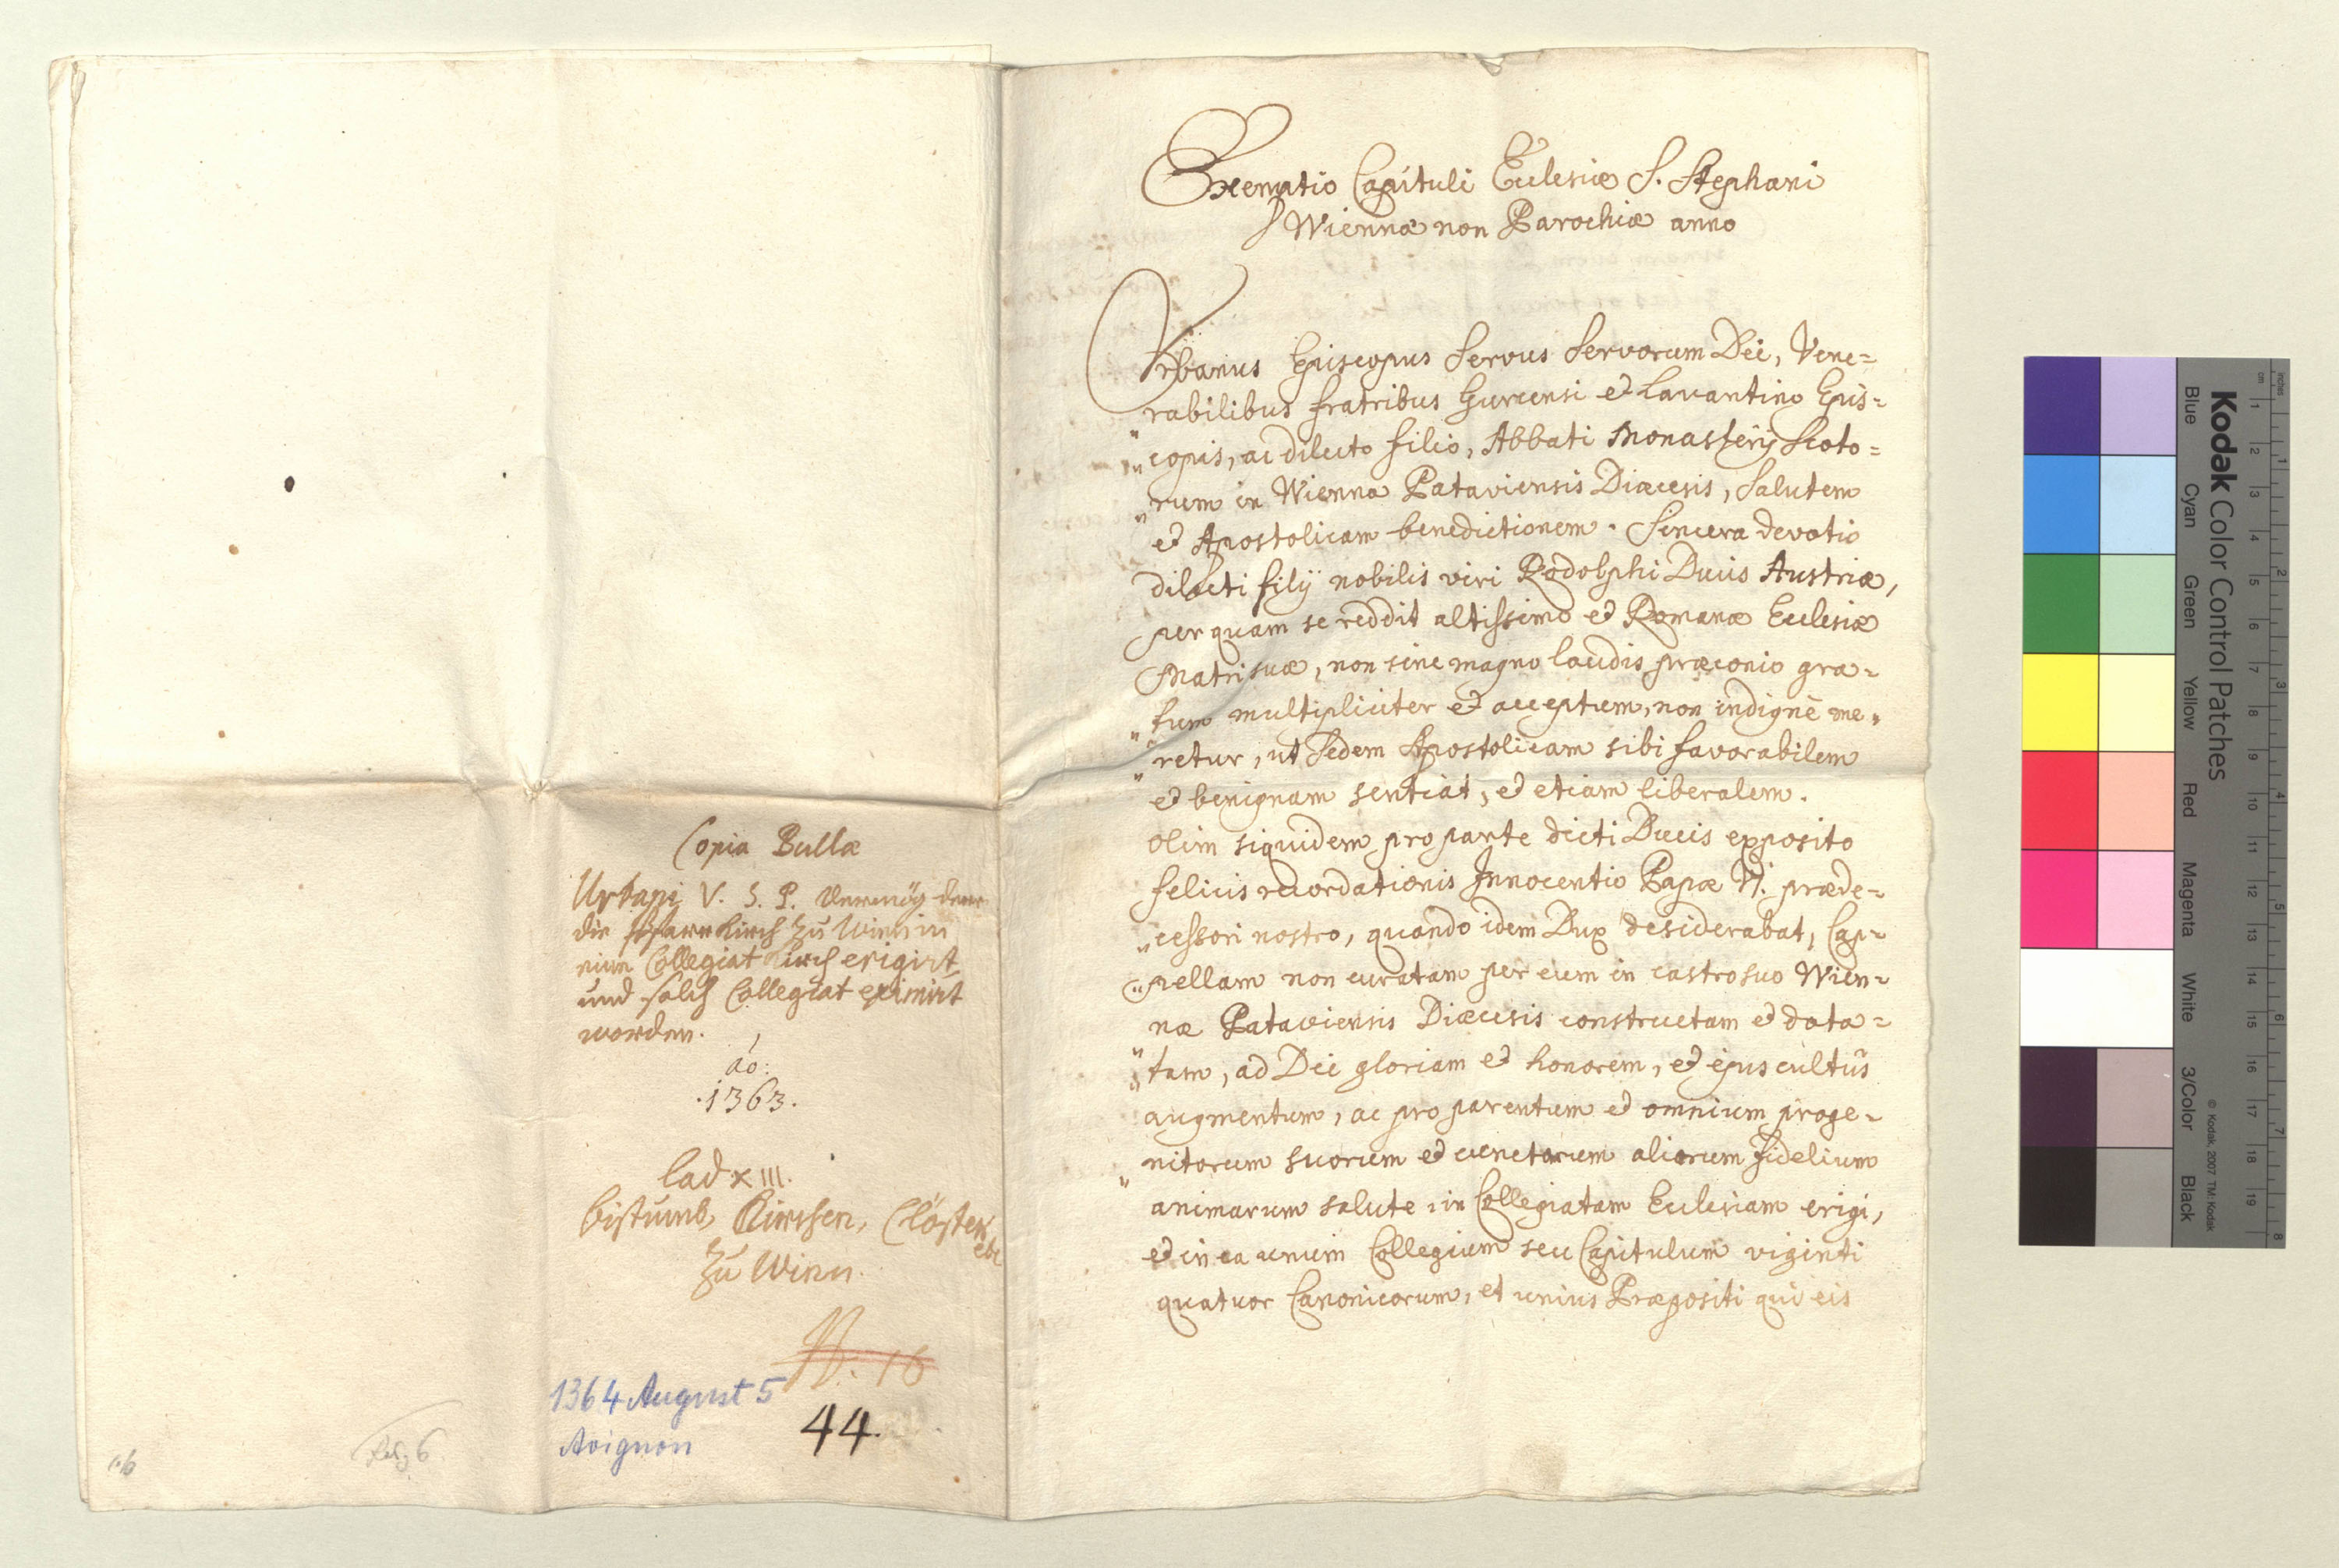 Copia Bullæ
Urbani V. S. P. Vermög dern
die Pfarrkirch zu Wienn in
eine Collegiat Kirch erigirt
und solch Collegiat eximirt
worden.
ao:
.1363.
Lad XIII.
Bistumb, Kirchen, Clöster
zu Wienn.
N. 16
1364 August 5
Avignon
44.
Exemptio Capituli Ecclesiæ S. Stephani
Wiennæ non Parochiæ anno
Vrbanus Episcopus Servus Servorum Dei, Vene=
rabilibus fratribus Gurcensi et Lavantino Epis=
copis, ac dilecto filio, Abbati Monasterÿ Scoto=
rum in Wienna Pataviensis Diæcesis, Salutem
et Apostolicam benedictionem. Sincera devotio
dilecti filÿ nobilis viri Rodolphi Ducis Austriæ,
per quam se reddit altissimo et Romanæ Ecclesiæ
Matri suæ, non sine magno laudis præconio gra=
tum multipliciter et acceptum, non indignè me=
retur, ut Sedem Apostolicam sibi favorabilem
et benignam sentiat, et etiam liberalem.
olim siquidem pro parte dicti Ducis exposito
felicis recordationis Innocentio Papæ VI. præde=
cessori nostro, quando idem Dux desiderabat, Cap=
pellam non curatam per eum in castro suo Wien=
næ Pataviensis Diæcesis constructam et dota=
tam, ad Dei gloriam et honorem, et ejus cultûs
augmentum, ac pro parentum et omnium proge=
nitorum suorum et cunctorum aliorum fidelium
animarum salute, in Collegiatam Ecclesiam erigi,
et in ea unum Collegium seu Capitulum viginti
quatuor Canonicorum, et unius Præpositi qui eis
Kodak Color Control Patches
Blue Cyan Green Yellow Red Magenta White 3/Color Black
© Kodak, 2007 TM: Kodak
inches 1 2 3 4 5 6 7 8
cm 1 2 3 4 5 6 7 8 9 10 11 12 13 14 15 16 17 18 19